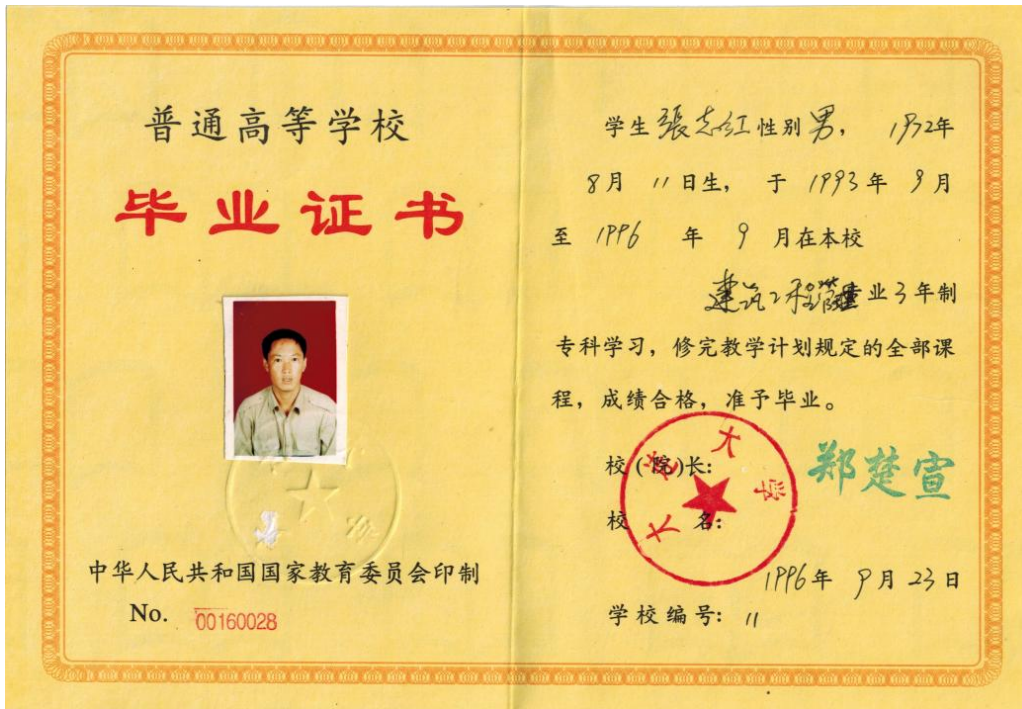 普通高等学校
毕业证书
中华人民共和国国家教育委员会印制
No. 00160028
学生張志红性别男，1972年
8月11日生，于1993年9月
至1996年9月在本校
建筑工程管理专业3年制
专科学习，修完教学计划规定的全部课
程，成绩合格，准予毕业。
校(院)长：郑楚宣
校名：
大连大学
1996年9月23日
学校编号：11